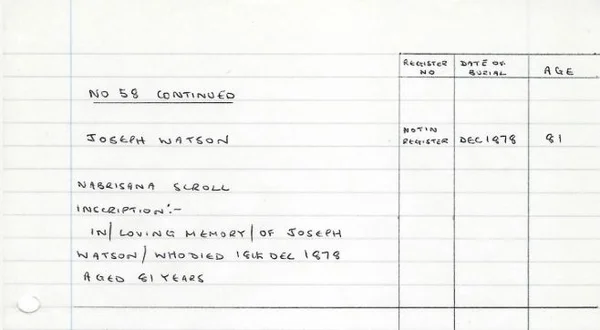 REGISTER NO DATE OF BURIAL AGE
NO 58 CONTINUED
JOSEPH WATSON NOT IN REGISTER DEC 1878 81
NABRISANA SCROLL
INSCRIPTION:-
IN/ LOVING MEMORY/ OF JOSEPH
WATSON/ WHO DIED 18th DEC 1878
AGED 81 YEARS